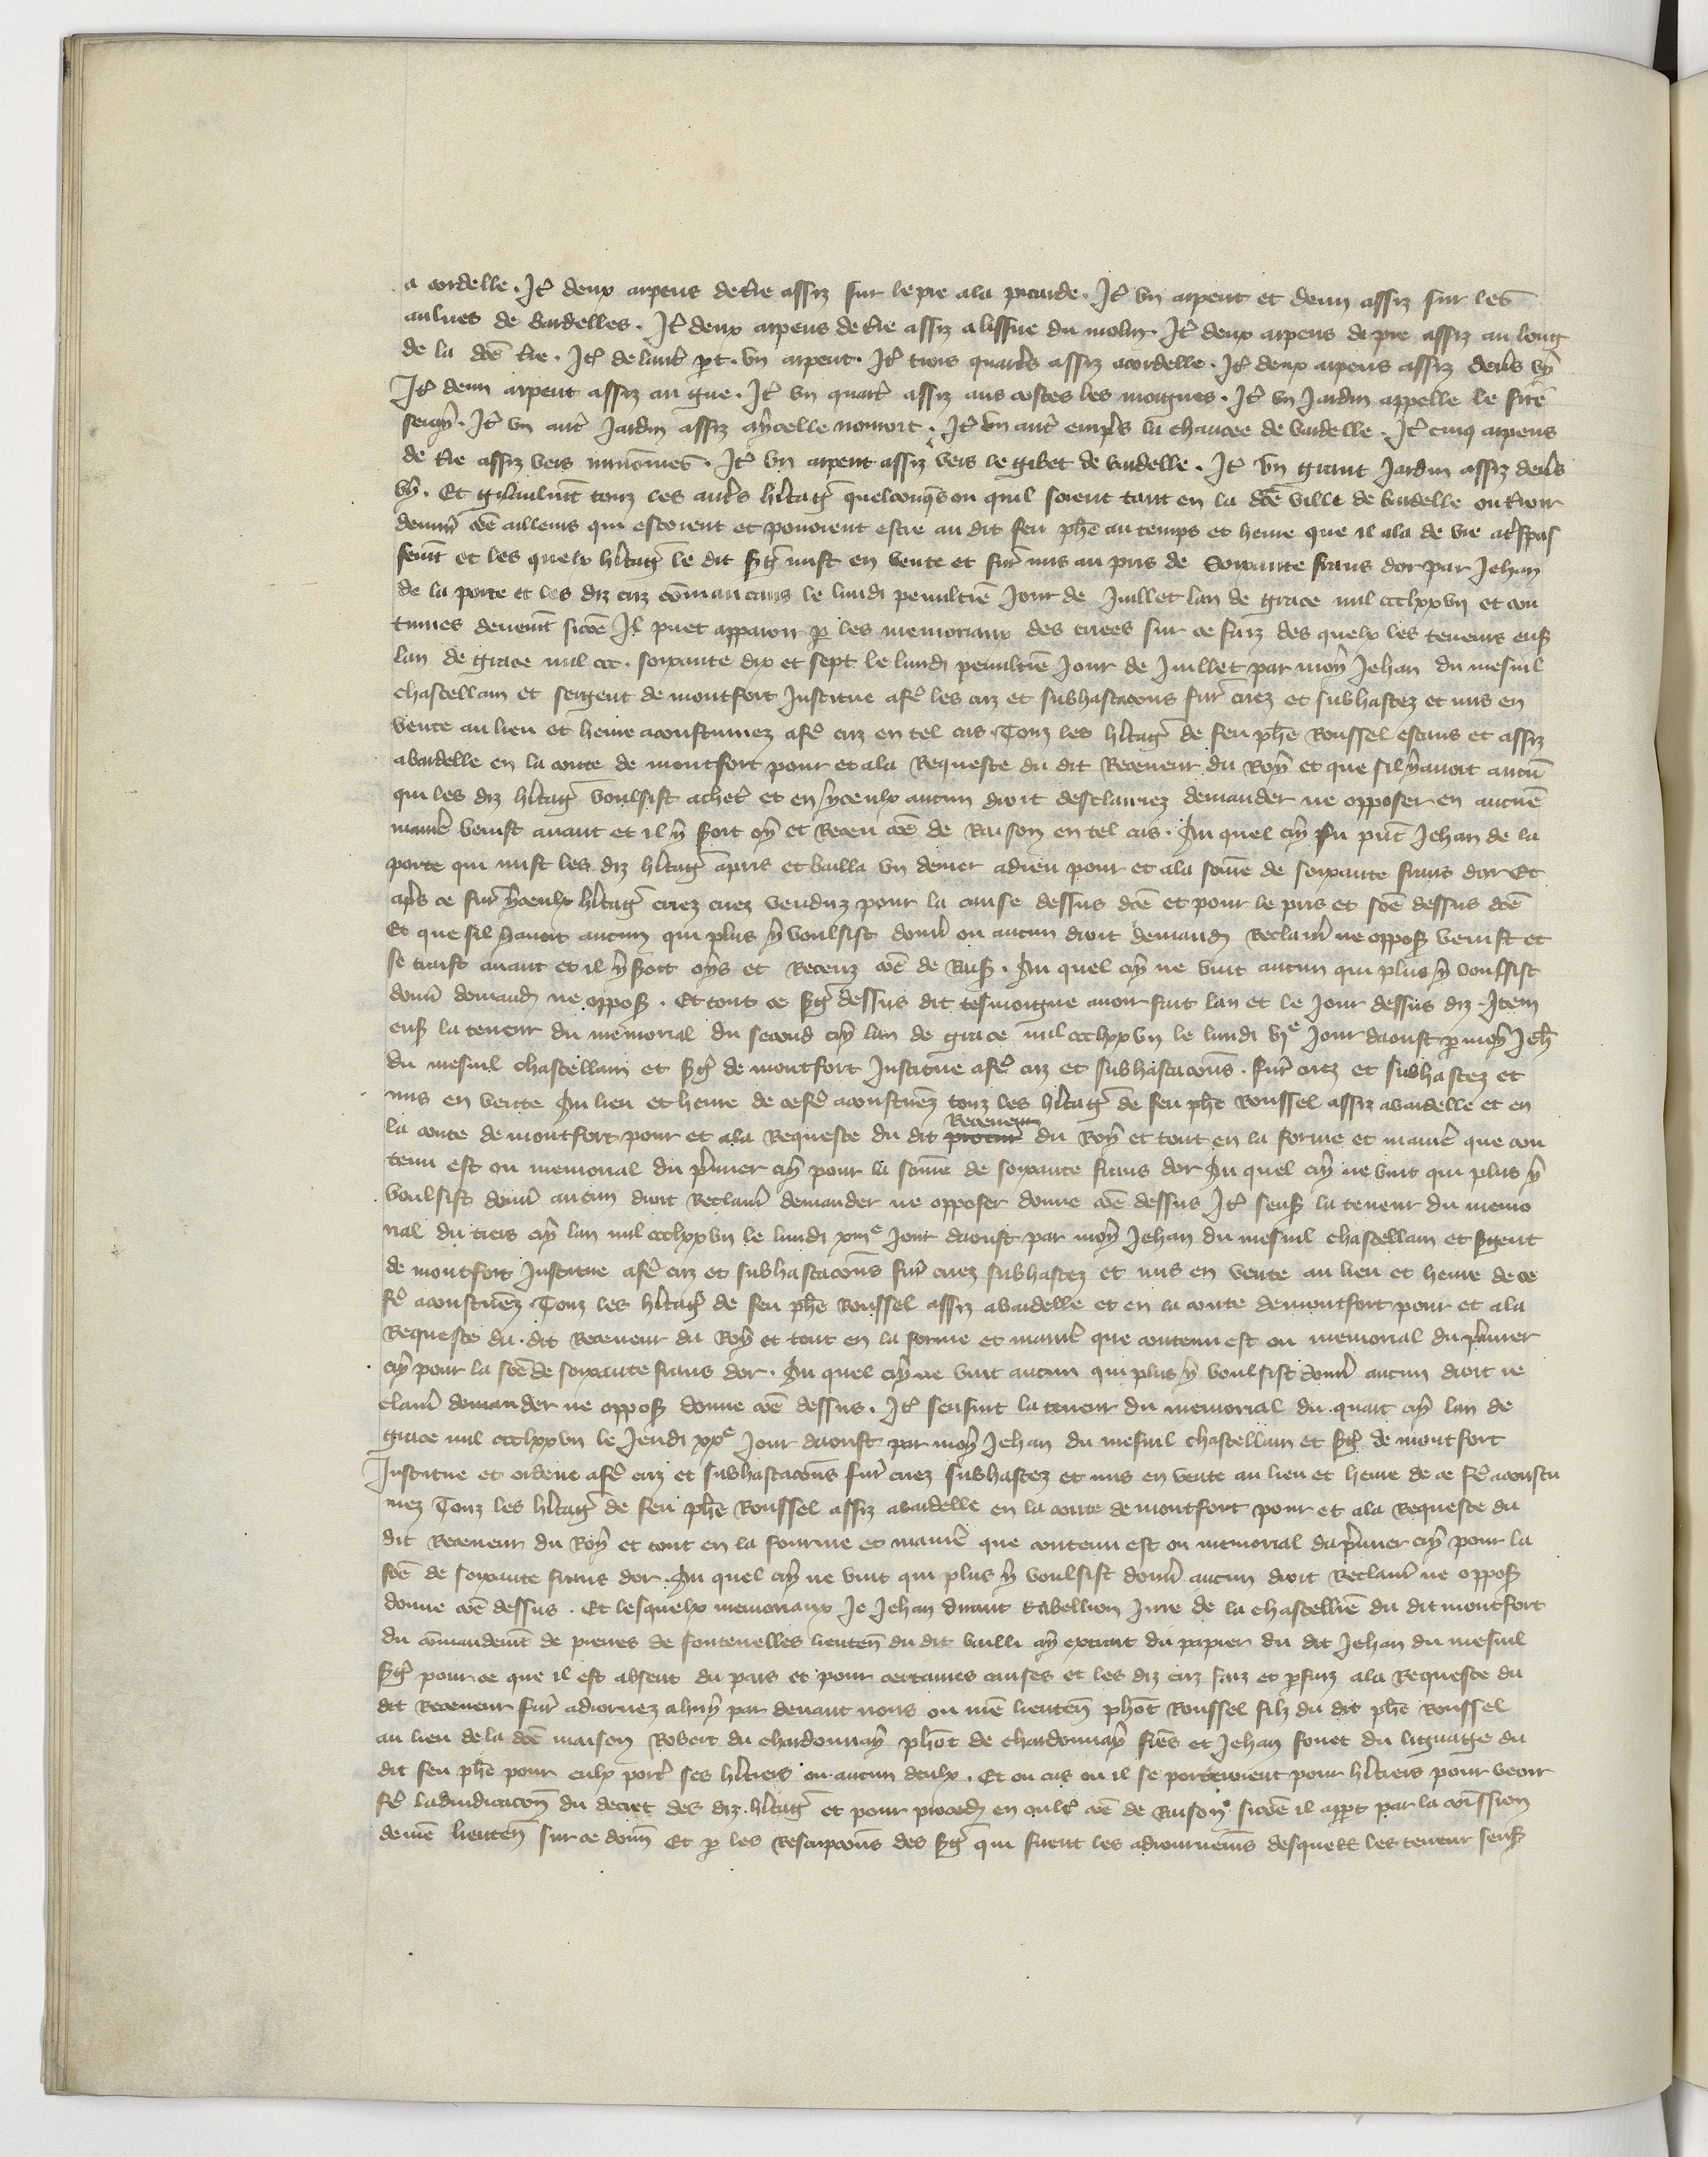 a cordelle. It deux arpens de tre assiz sur le pre ala picarde. It un arpent et demi assiz sur les
aulnes de bardelles. It deux arpens de tre assiz a lissue du molin. It deux arpens de pre assiz au long
de la dce tre. It de laut pt. un arpent. It trois quartrs assiz acordelle. It deux arpens assiz devrs vy
It demi arpent assiz au gue. It un quart assiz aus costes les moignes. It un Jardin appelle le
It un aut Jardin assiz It un aut empres la chaucee de bardelle. It cinq arpens
de tre assiz vers It un arpent assiz vers le gibet de bardelle. It un grant Jardin assiz devrs
vy. Et genalmt touz les autrs hitag quelconqs ou quil soient tant en la dce ville de bardelle ou
come ailleurs qui estoient et pouoient estre au dit feu phe au temps et heure que il ala de vie a trspas
semt et les quelx hitag le dit sg mist en vente et fur mis au pris de Soixante frans dor par Jehan
de la porte et les diz criz comancans le lundi penultie Jour de Juillet lan de grace mil ccclxxvij et con
tinues deuemt sicoe Il puet apparoir p les memoriaux des criees sur ce faiz des quelx les teneurs ens
lan de grace mil ccc. soixante dix et sept le lundi penultie Jour de Juillet par moy Jehan du mesnil
chastellain et sergent de montfort Institue afe les criz et subhastacons fur criez et subhastez et mis en
vente au lieu et heure acoustumez afe criz en tel cas. Touz les hitag de feu phe Roussel estans et assiz
abardelle en la conte de montfort pour et ala Requeste du dit Receueur du Roy et que sil yauoit aucu
qui les diz hitag voulsist achet et en yceulx aucun droit desclairiez demander ne opposer en aucue
manie venist auant et il y Soit oy et Receu coe de Raison en tel cas. Au quel cry fu put Jehan de la
porte qui mist les diz hitag apris et bailla un denier adieu pour et ala some de soixante frans dor Et
aps ce fur yceulx hitag criez criez venduz pour la cause dessus dce et pour le pris et soe dessus dce
Et que sil yauoit aucun qui plus y voulsist donn ou aucun droit demand Reclam ne oppos venist et
se traist auant et il y Soit oys et Receuz coe de Rais. Au quel cry ne vint aucun qui plus y voulsist
donn demand ne oppos. Et tout ce sg dessus dit tesmoigne auoir fait lan et le Jour dessus diz. Item
ens la teneur du memorial du second cry lan de grace mil ccclxxvij le lundi vje Jour daoust p moy Jeh
du mesnil chastellain et sg de montfort Institue afe criz et subhastacons. fur criez et subhastez et
mis en vente Au lieu et heure de cefe acoustuez touz les hitag de feu phe Roussel assiz abardelle et en
la conte de montfort pour et ala Requeste du dit procur Receueur du Roy et tout en la forme et manie que con
tenu est ou memorial du pmier cry pour la some de soixante frans dor Au quel cry ne vint qui plus y
voulsist donn aucun droit Reclam demander ne opposer donne coe dessus It sens la teneur du memo
rial du tiers cry lan mil ccclxxvij le lundi xiije Jour daoust par moy Jehan du mesnil chastellain et sgent
de montfort Institue afe criz et subhastacons fur criez subhastez et mis en vente au lieu et heure de ce
fe acoustuez. Touz les hitag de feu phe Roussel assiz abardelle et en la conte demontfort pour et ala
Requeste du. dit Receueur du Roy et tout en la forme et manie que contenu est ou memorial du pmier
cry pour la soe de soixante frans dor. Au quel cry ne vint aucun qui plus y voulsist donn aucun droit re
clam demander ne oppos donne coe dessus. It sensuit la teneur du memorial du quart cry lan de
grace mil ccclxxvij le Jeudi xxe Jour daoust par moy Jehan du mesnil chastellain et sg de montfort
Institue et ordene afe criz et subhastacons fur criez subhastez et mis en vente au lieu et heure de ce fe acoustu
mez Touz les hitag de feu phe Roussel assiz abardelle en la conte de montfort pour et ala Requeste du
dit Receueur du Roy et tout en la fourme et manie que contenu est ou memorial du pmier cry pour la
soe de soixante frans dor. Au quel cry ne vint qui plus y voulsist donn aucun droit Reclam ne oppos
donne coe dessus. Et lesquelx memoriaux Je Jehan durant tabellion Jure de la chastellie du dit montfort
du comandemt de pierres de fontenelles lieuten du dit bailli ay extrait du papier du dit Jehan du mesnil
sg pour ce que il est absent du pais et pour certaines causes et les diz criz faiz et pfaiz ala Requeste du
dit Receueur fur adiornez par deuant nous ou nre lieuten phot Roussel filz du dit phe Roussel
au lieu de la dce maison Robert du chardonnay phot de chardonnay frēs et Jehan fouet du lignage du
dit feu phe pour eulx port ses hitiers ou aucun deulx. Et ou cas ou il se porteroient pour hitiers pour veoir
fe ladiudicacon du decret des diz hitag et pour proced en oult coe de Raison. sicoe il appt par la comission
de nre lieuten sur ce donn Et p les Rescripcons des sg qui firent les adiournems desquelx les teneur sens